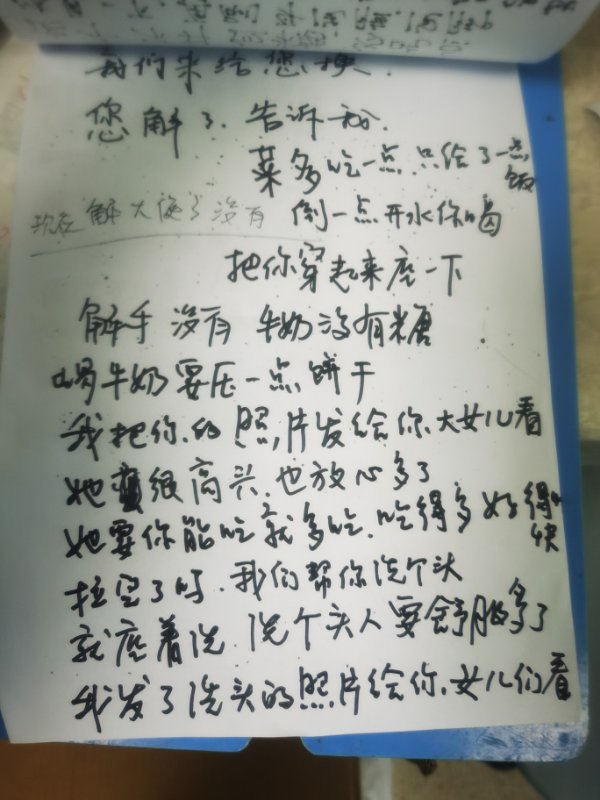 我们来给您换.
您解了.告诉我.
菜多吃一点.只给了一点饭
现在解大便了没有
倒一点开水你喝
把你穿起来座一下
解手没有 牛奶没有糖
喝牛奶要压一点饼干
我把你的照片发给你大女儿看
她很高兴.也放心多了
她要你能吃就多吃.吃得多好得快
拉完了吗.我们帮你洗个头
就座着洗 洗个头人要舒服多了
我发了洗头的照片给你.女儿们看